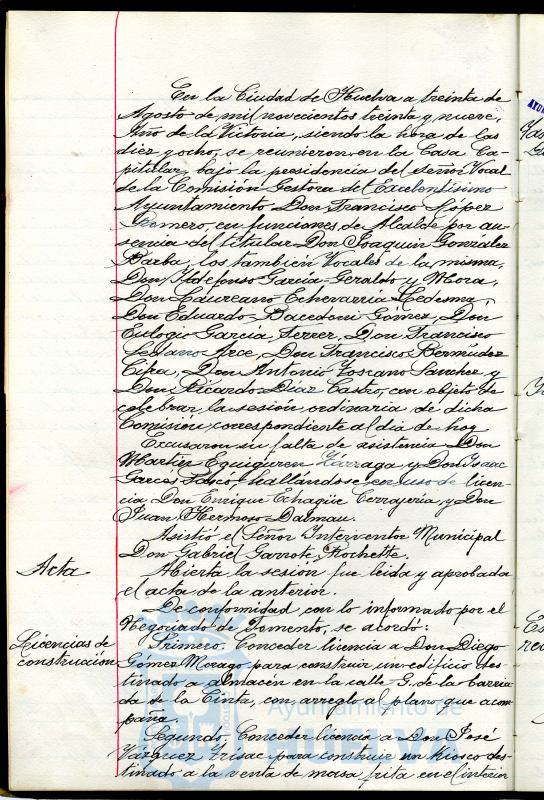 En la Ciudad de Huelva a treinta de
Agosto de mil novecientos treinta y nueve,
Año de la Victoria, siendo la hora de las
diez y ocho, se reunieron en la Casa Ca-
pitular, bajo la presidencia del Señor Vocal
de la Comisión Gestora del Excelentísimo
Ayuntamiento Don Francisco López
Romero, en funciones de Alcalde por au-
sencia del titular Don Joaquin Gonzalez
Barba, los también Vocales de la misma,
Don Ildefonso Garcia-Geraldo y Mora,
Don Laureano Echevarria Ledesma,
Don Eduardo Bacedoni Gómez, Don
Eulogio Garcia Ferrer, Don Francisco
Arce, Don Francisco Bermúdez
Cifra, Don Antonio Toscano Sánchez y
Don Ricardo Díaz Castro, con objeto de
celebrar la sesión ordinaria de dicha
Comisión, correspondiente al día de hoy
Excusaron su falta de asistencia Don
Martin Eguiguren y Don Isaac
Garces hallándose en uso de licen-
cia Don Enrique Echagüe Cerrajería, y Don
Juan Hermoso Dalmau.
Asistió el Señor Interventor Municipal
Don Gabriel Garrote Rochette.
Acta
Abierta la sesión fue leida y aprobada
el acta de la anterior.
De conformidad con lo informado por el
Negociado de Fomento, se acordó:
Licencias de
construccion
Primero. Conceder licencia a Don Diego
Gómez Morago para construir un edificio des-
tinado a almacén en la calle G, de la barria-
da de la Cinta, con arreglo al plano que acom
paña.
Segundo. Conceder licencia a Don José
Vázquez para construir un Kiosco des-
tinado a la venta de masa frita en el interior
Ayuntamiento de
HUELVA